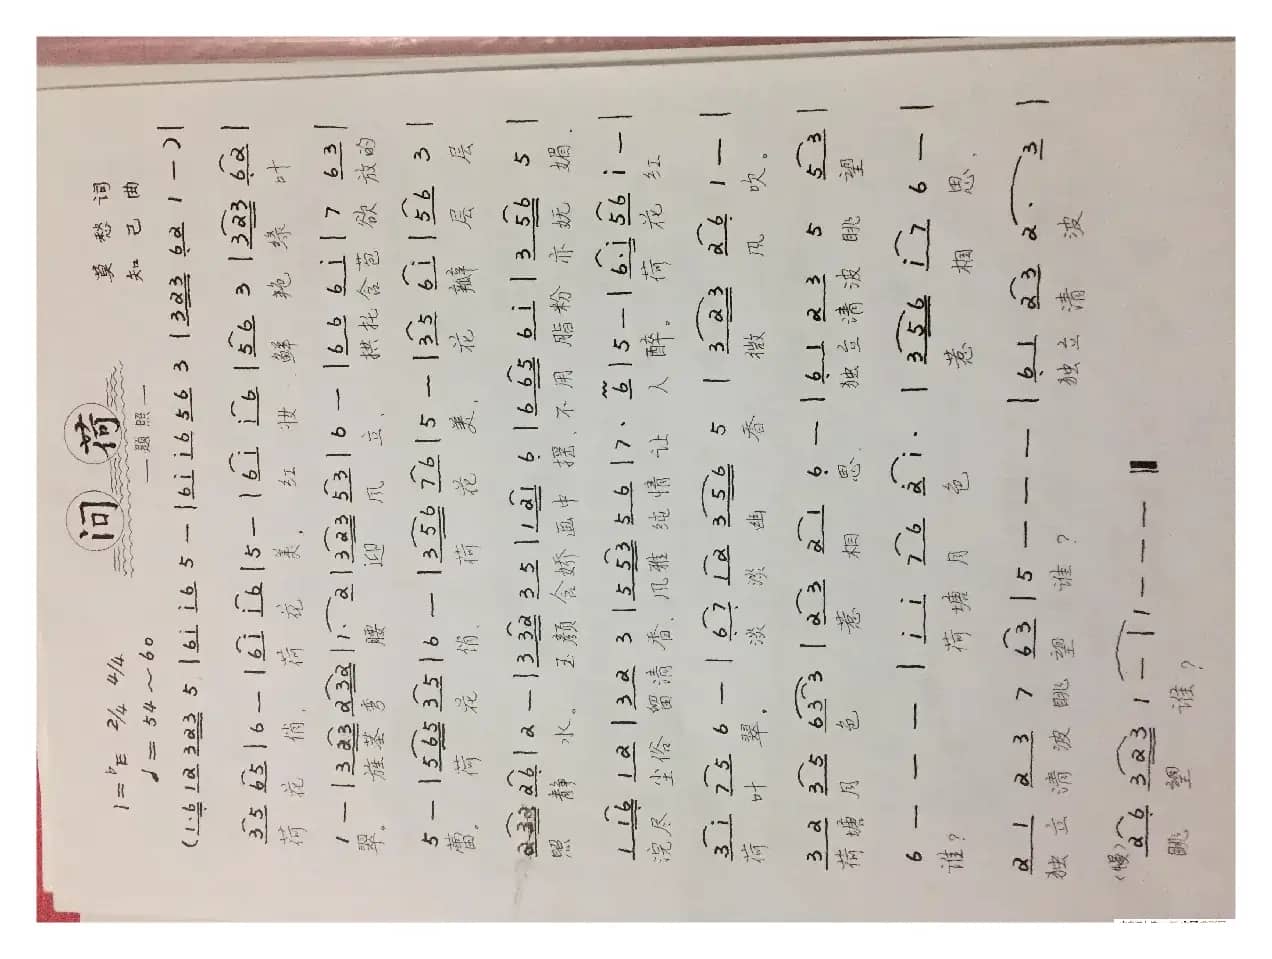 问荷
——题照——
莫愁 词
知己 曲
1=♭E 2/4 4/4
♩=54~60
(1·6 12 323 5 | 6i i6 5 — | 6i i6 56 3 | 323 62 1 — ) |
35 65 | 6 — | 6i i6 | 5 — | 6i i6 | 56 3 | 323 62 |
荷花俏,荷花美,红妆鲜艳绿叶
1 — | 323 232 | 1· 2 | 323 53 | 6 — | 66 6i | 7 63 |
翠。旌茎弯腰迎风立,拱托含苞欲放的
5 — | 565 35 | 6 — | 356 76 | 5 — | 35 6i | 56 3 |
蕾。荷花俏,荷花美,花瓣层层
232 26 | 2 — | 332 35 | 121 6 | 665 6i | 3 56 5 |
照静水。玉颜含娇画中摆,不用脂粉亦妩媚.
1 i6 12 | 32 3 | 553 56 | 7· 6 | 5 — | 6·i 56 i — |
浣尽尘俗留清香,风雅纯情让人醉。荷花红
3i 75 6 — | 67 i2 356 5 | 323 26 1 — |
荷叶翠,淡淡幽香微风吹。
32 35 633 | 23 21 6 — | 61 23 5 53 |
荷塘月色惹相思,独立清波眺望
6 — — — | ii 76 2i· | 356 i7 6 — |
谁?荷塘月色惹相思,
21 23 7 63 | 5 — — — | 61 23 2· 3 |
独立清波眺望谁?独立清波
(慢)
26 323 1 — | 1 — — — ‖
眺望谁?